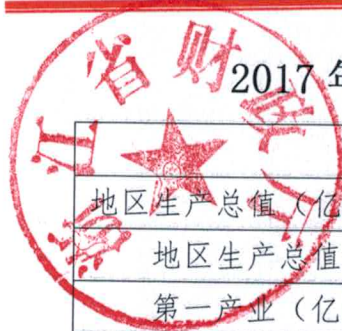 浙江省财政厅
2017 年
地区生产总值（亿
地区生产总值
第一产业（亿